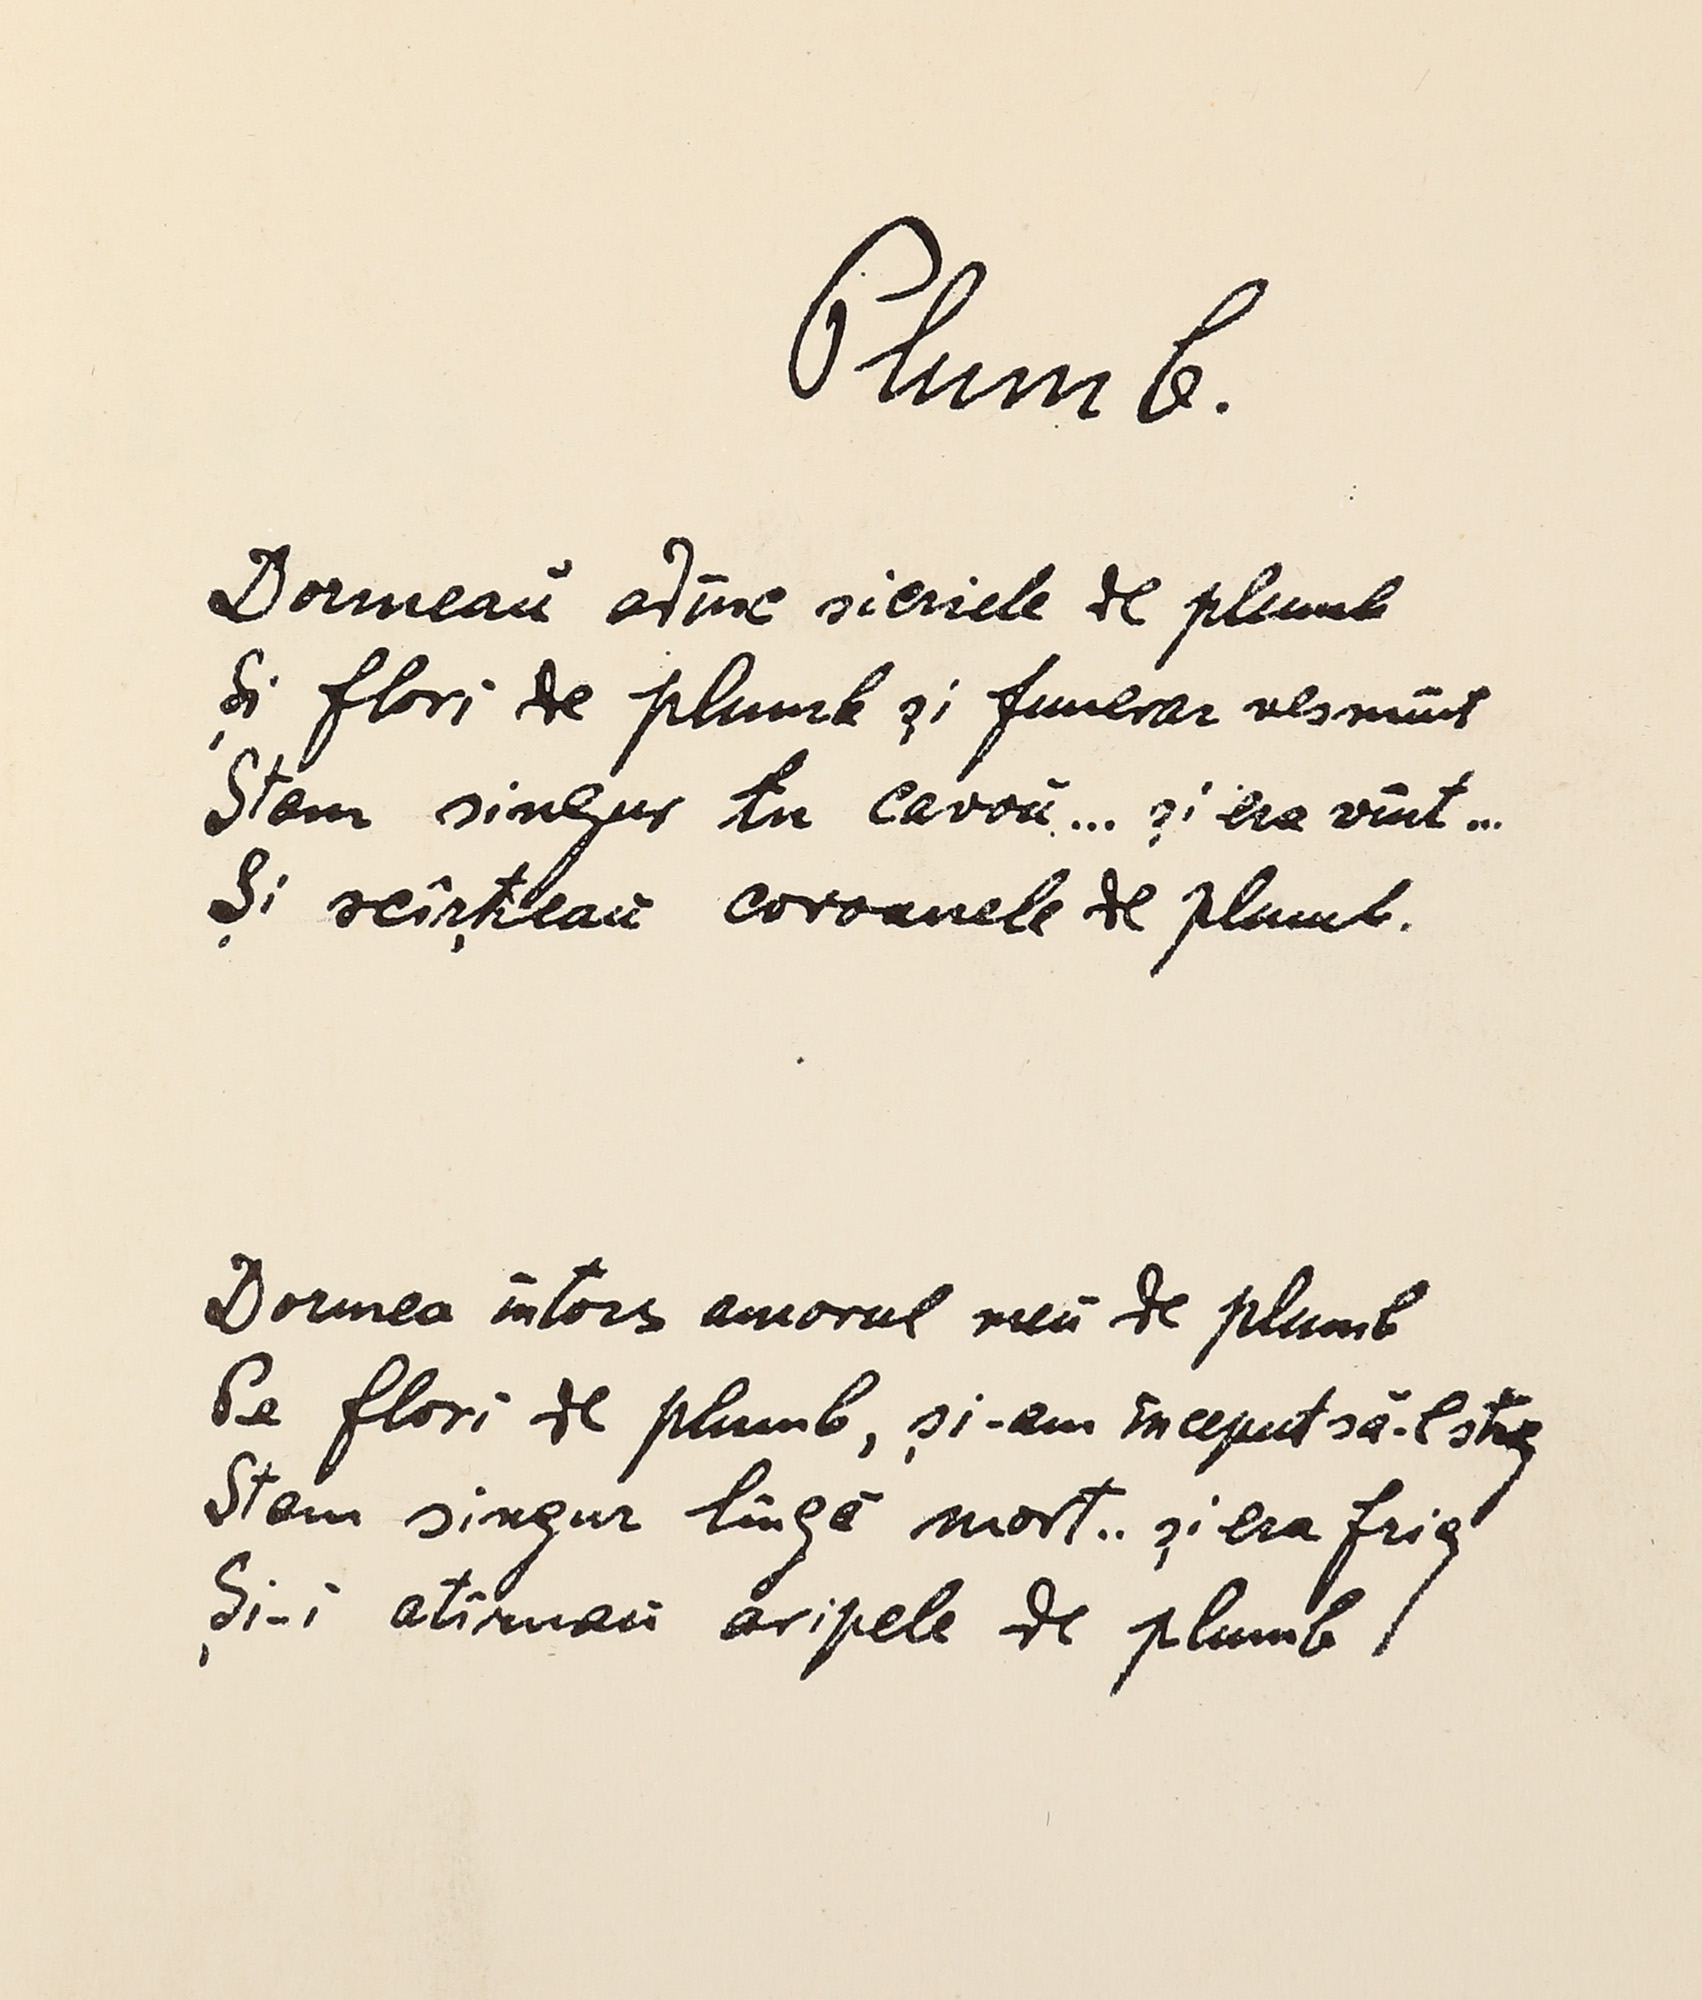 Plumb.
Dormeaŭ adînc sicriele de plumb
Și flori de plumb și funerar vesmînt
Stam singur în cavoŭ... și era vînt...
Și scîrțîeaŭ coroanele de plumb.
Dormea întors amorul meŭ de plumb
Pe flori de plumb, și-am început să-l strig
Stam singur lîngă mort.. și era frig
Și-i atîrnaŭ aripele de plumb